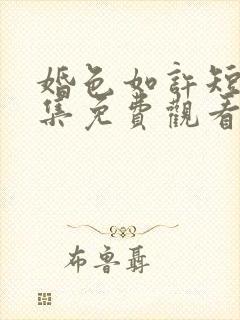 婚色如許短
集免費觀看
布魯聶